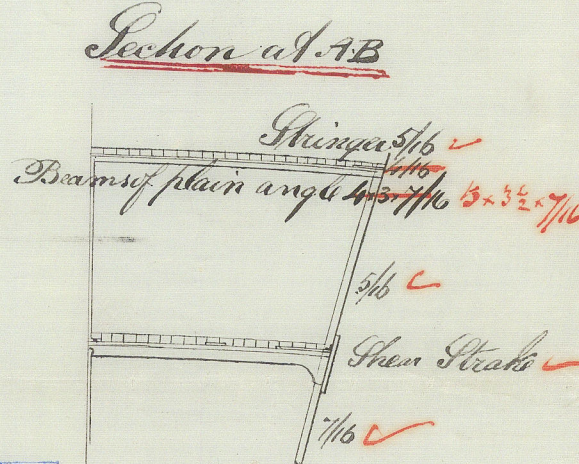 Section at A·B
Stringer 5/16
4/16
Beams of plain angle 4×3×7/16 5 × 3 1/2 × 7/16
5/16
Shear Strake
7/16